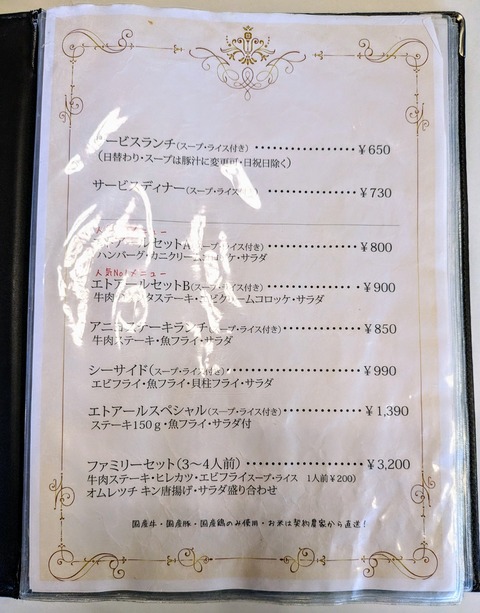 ービスランチ(スープ・ライス付き)・・・・・・・・・・・・・・・¥650
(日替わり・スープは豚汁に変更可・日祝日除く)
サービスディナー(スープ・ライス付き)・・・・・・・・・・・・・¥730
エトアールセットA(スープ・ライス付き)・・・・・・・・・・・・・¥800
ハンバーグ・カニクリームコロッケ・サラダ
人気No1メニュー
エトアールセットB(スープ・ライス付き)・・・・・・・・・・・・・¥900
ステーキ・エビクリームコロッケ・サラダ
ステーキランチ(スープ・ライス付き)・・・・・・・・・・・・・¥850
牛肉ステーキ・魚フライ・サラダ
シーサイド(スープ・ライス付き)・・・・・・・・・・・・・・・・・・¥990
エビフライ・魚フライ・貝柱フライ・サラダ
エトアールスペシャル(スープ・ライス付き)・・・・・・・・・・¥1,390
ステーキ150g・魚フライ・サラダ付
ファミリーセット(3〜4人前)・・・・・・・・・・・・・・・・・・¥3,200
牛肉ステーキ・ヒレカツ・エビフライスープ・ライス 1人前¥200)
オムレツチキン唐揚げ・サラダ盛り合わせ
国産牛・国産豚・国産鶏のみ使用・お米は契約農家から直送!